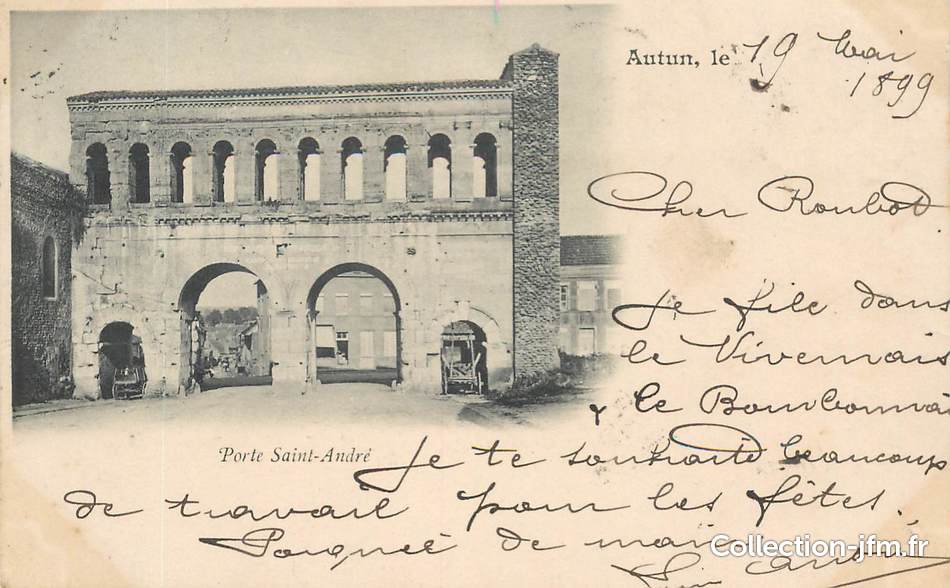 Autun, le 19 Mai
1899
Cher Roubot
Je file dans
le Nivernais
& le Bourbonnais
Porte Saint-André
Je te souhaite beaucoup
de travail pour les fêtes.
Poignée de main
Collection-jfm.fr